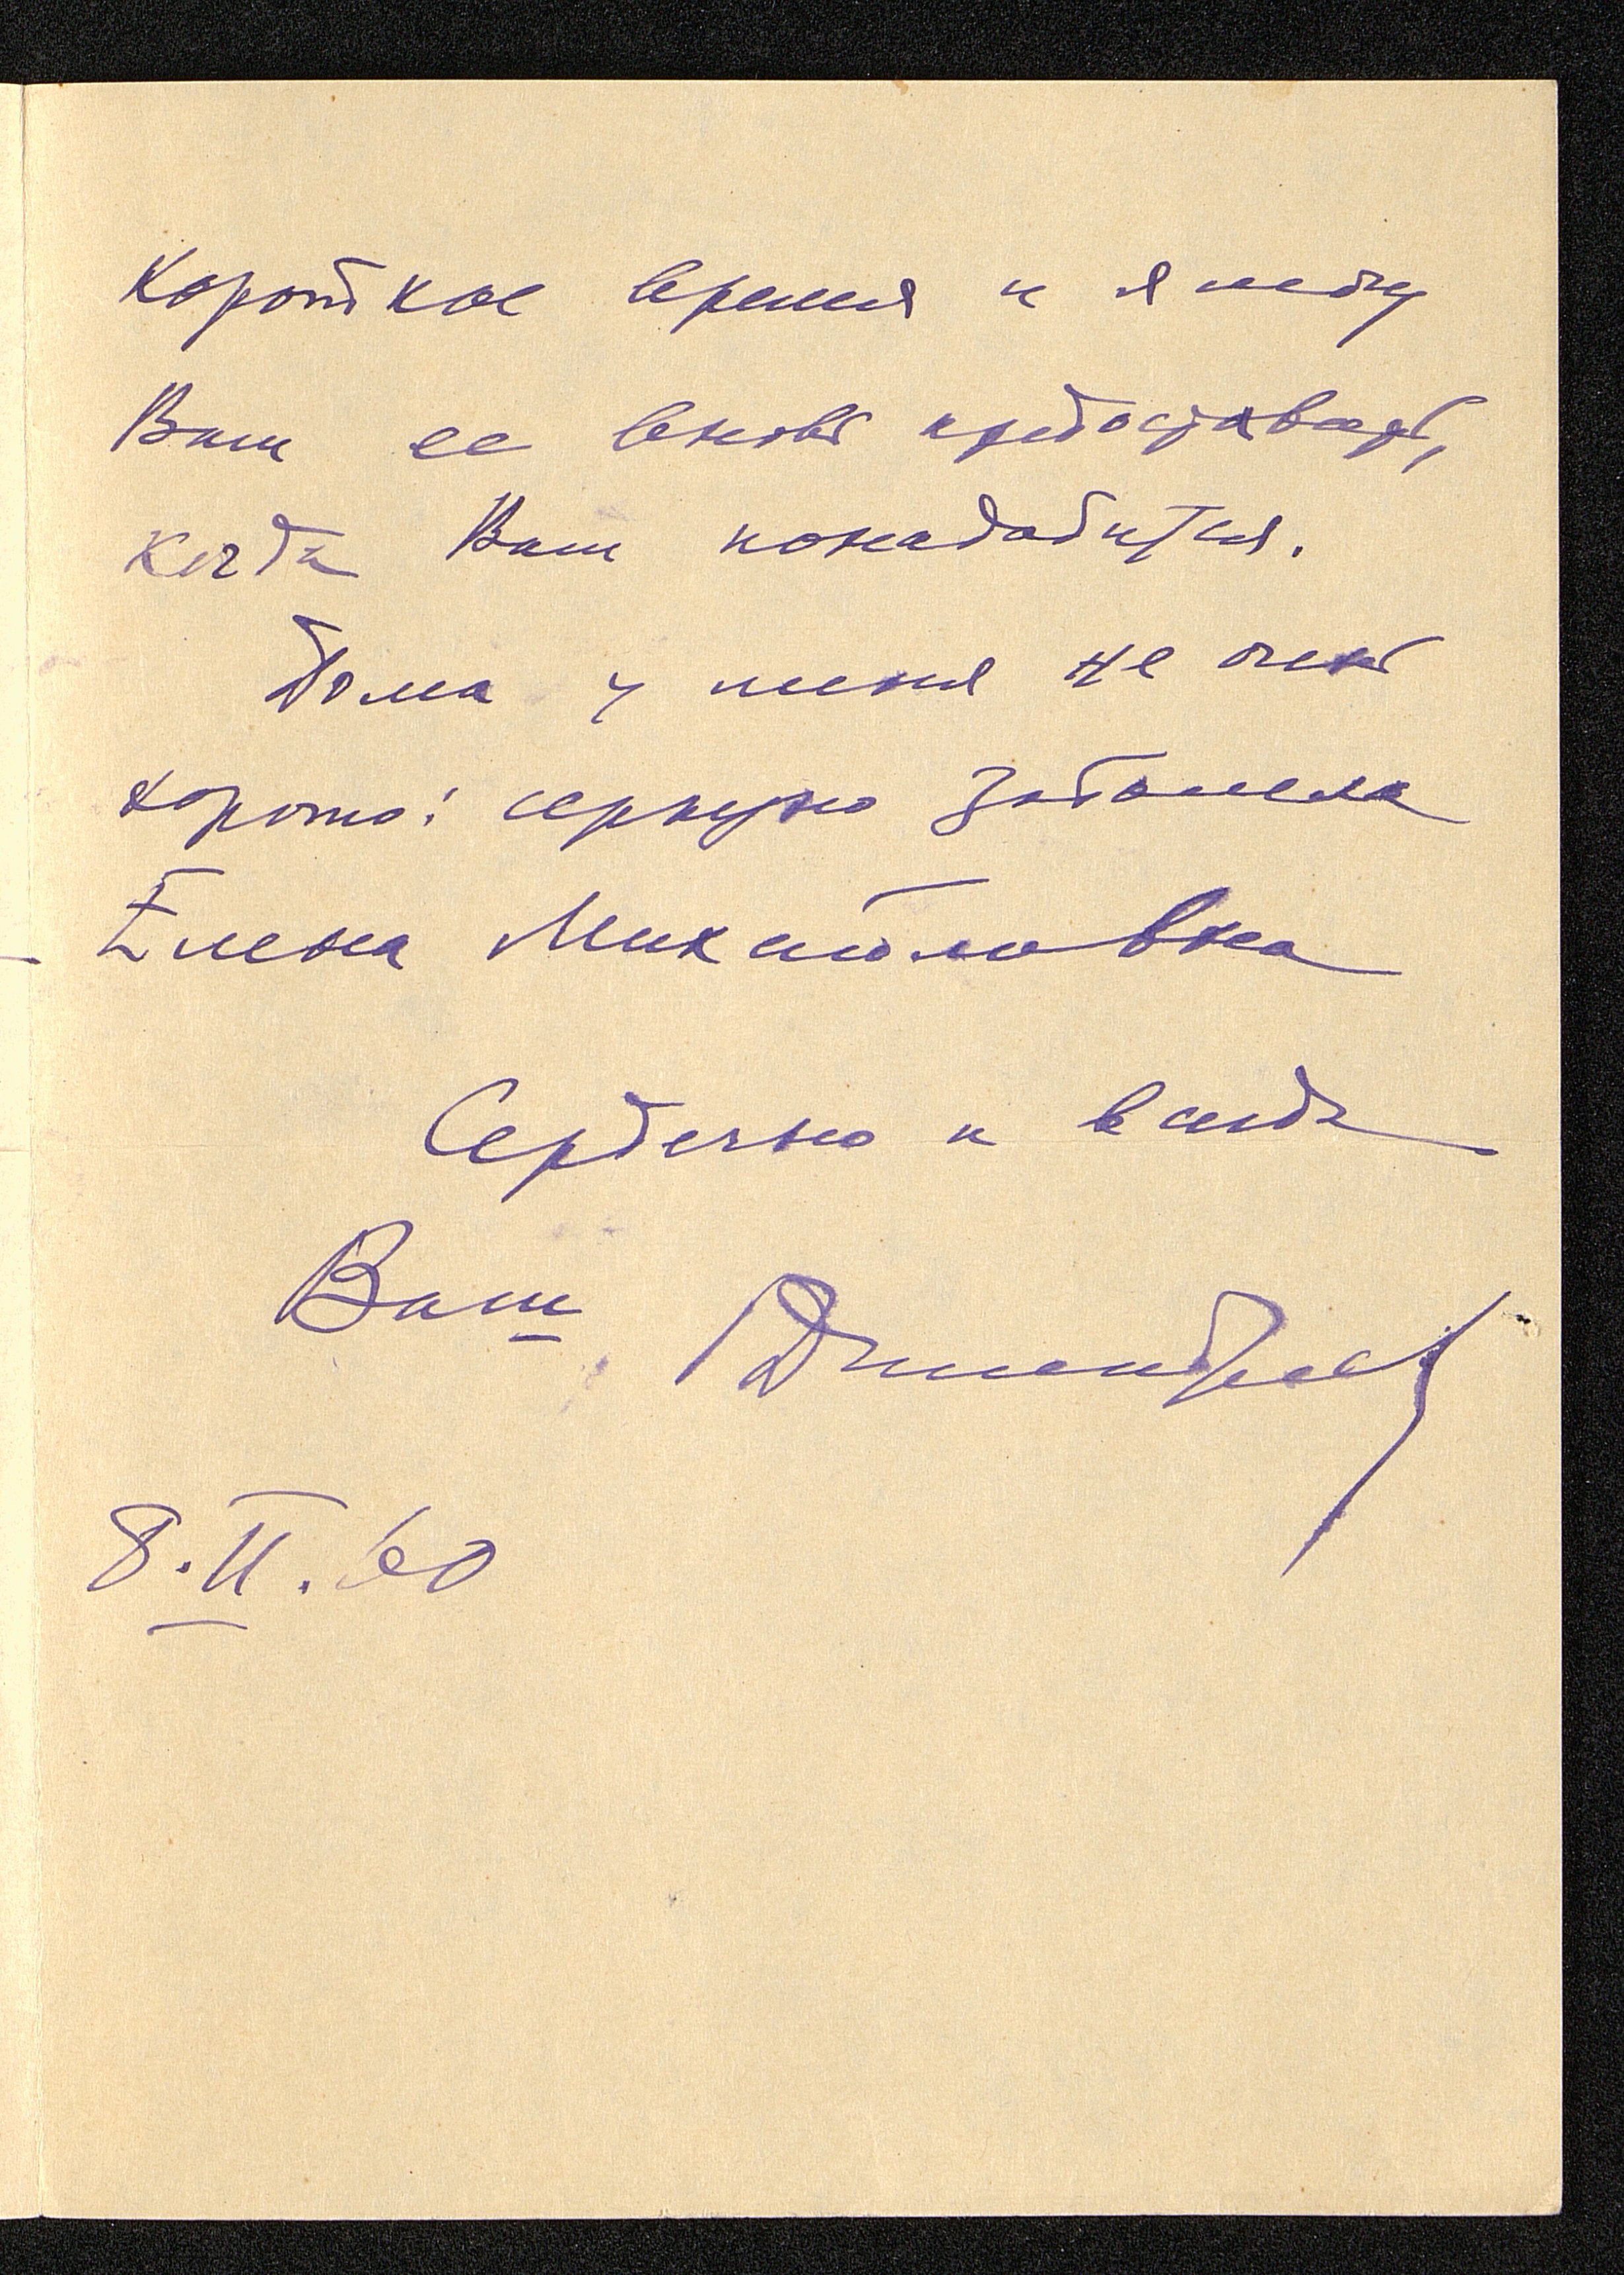 короткое время и я могу
Вам ее вновь предоставить,
когда Вам понадобится.
Дома у меня не очень
хорошо: серьезно заболела
Елена Михайловна
Сердечно и всегда
Ваш
8.II.60